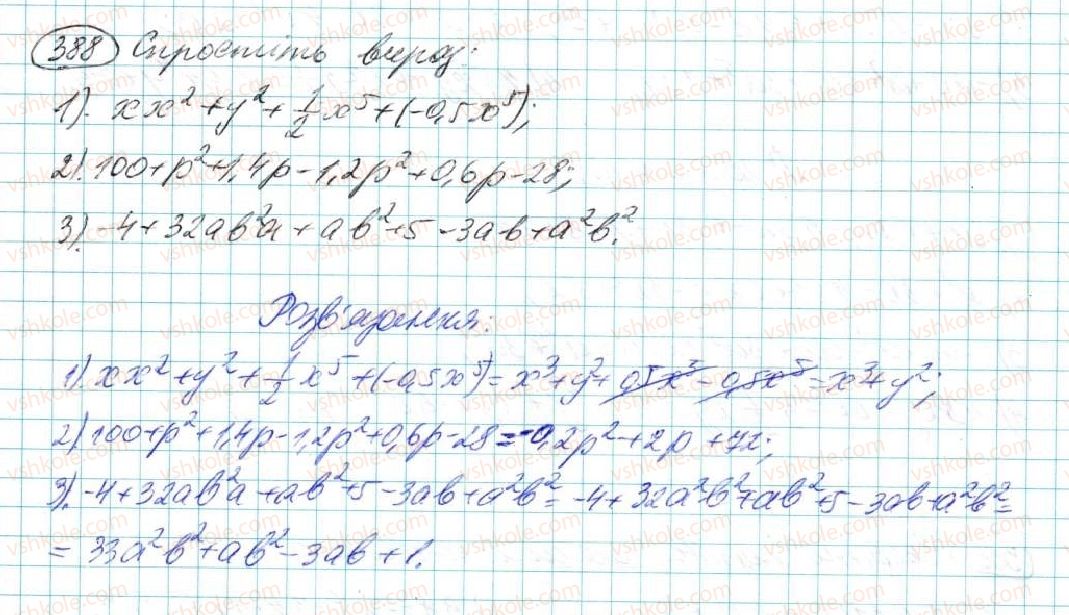 388 Спростіть вираз:
1). xx² + y² + 1/2 x⁵ + (-0,5x⁵);
2). 100 + p² + 1,4p - 1,2p² + 0,6p - 28;
3). -4 + 32ab²a + ab² + 5 - 3ab + a²b².
Розв'язання:
1). xx² + y² + 1/2 x⁵ + (-0,5x⁵) = x³ + y² + 0,5x⁵ - 0,5x⁵ = x³ + y²;
2) 100 + p² + 1,4p - 1,2p² + 0,6p - 28 = -0,2p² + 2p + 72;
3). -4 + 32ab²a + ab² + 5 - 3ab + a²b² = -4 + 32a²b² + ab² + 5 - 3ab + a²b² =
= 33a²b² + ab² - 3ab + 1.